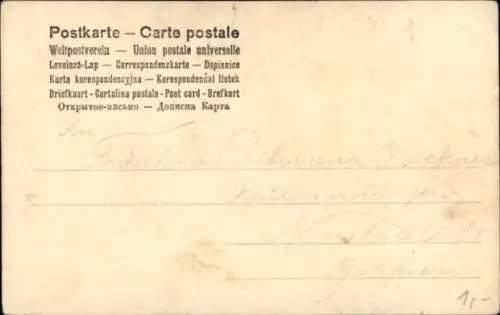 Postkarte – Carte postale
Weltpostverein — Union postale universelle
Levelező-Lap — Correspondenzkarte — Dopisnice
Karta korespondencyjna — Korespondenčai lístek
Briefkaart - Cartolina postale - Post card - Brefkort
Открытое-письмо — Дописна Карта
An
Fräulein Philomena
1,-